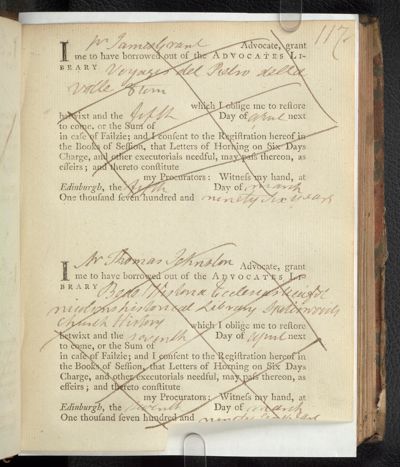 117
I Mr James Grant Advocate, grant
me to have borrowed out of the ADVOCATES LI-
BRARY Voyages del Pietro della
Valle
which I oblige me to restore
betwixt and the fifth Day of april next
to come, or the Sum of
in case of Failzie; and I consent to the Registration hereof in
the Books of Session, that Letters of Horning on Six Days
Charge, and other executorials needful, may pass thereon, as
effeirs; and thereto constitute
my Procurators: Witness my hand, at
Edinburgh, the fifth Day of march
One thousand seven hundred and ninety six years
I Mr Thomas Johnston Advocate, grant
me to have borrowed out of the ADVOCATES LI-
BRARY Beda Historia Ecclesiastica
nicolsons historical Library Spotiswoods
Church History which I oblige me to restore
betwixt and the seventh Day of april next
to come, or the Sum of
in case of Failzie; and I consent to the Registration hereof in
the Books of Session, that Letters of Horning on Six Days
Charge, and other executorials needful, may pass thereon, as
effeirs; and thereto constitute
my Procurators: Witness my hand, at
Edinburgh, the seventh Day of march
One thousand seven hundred and